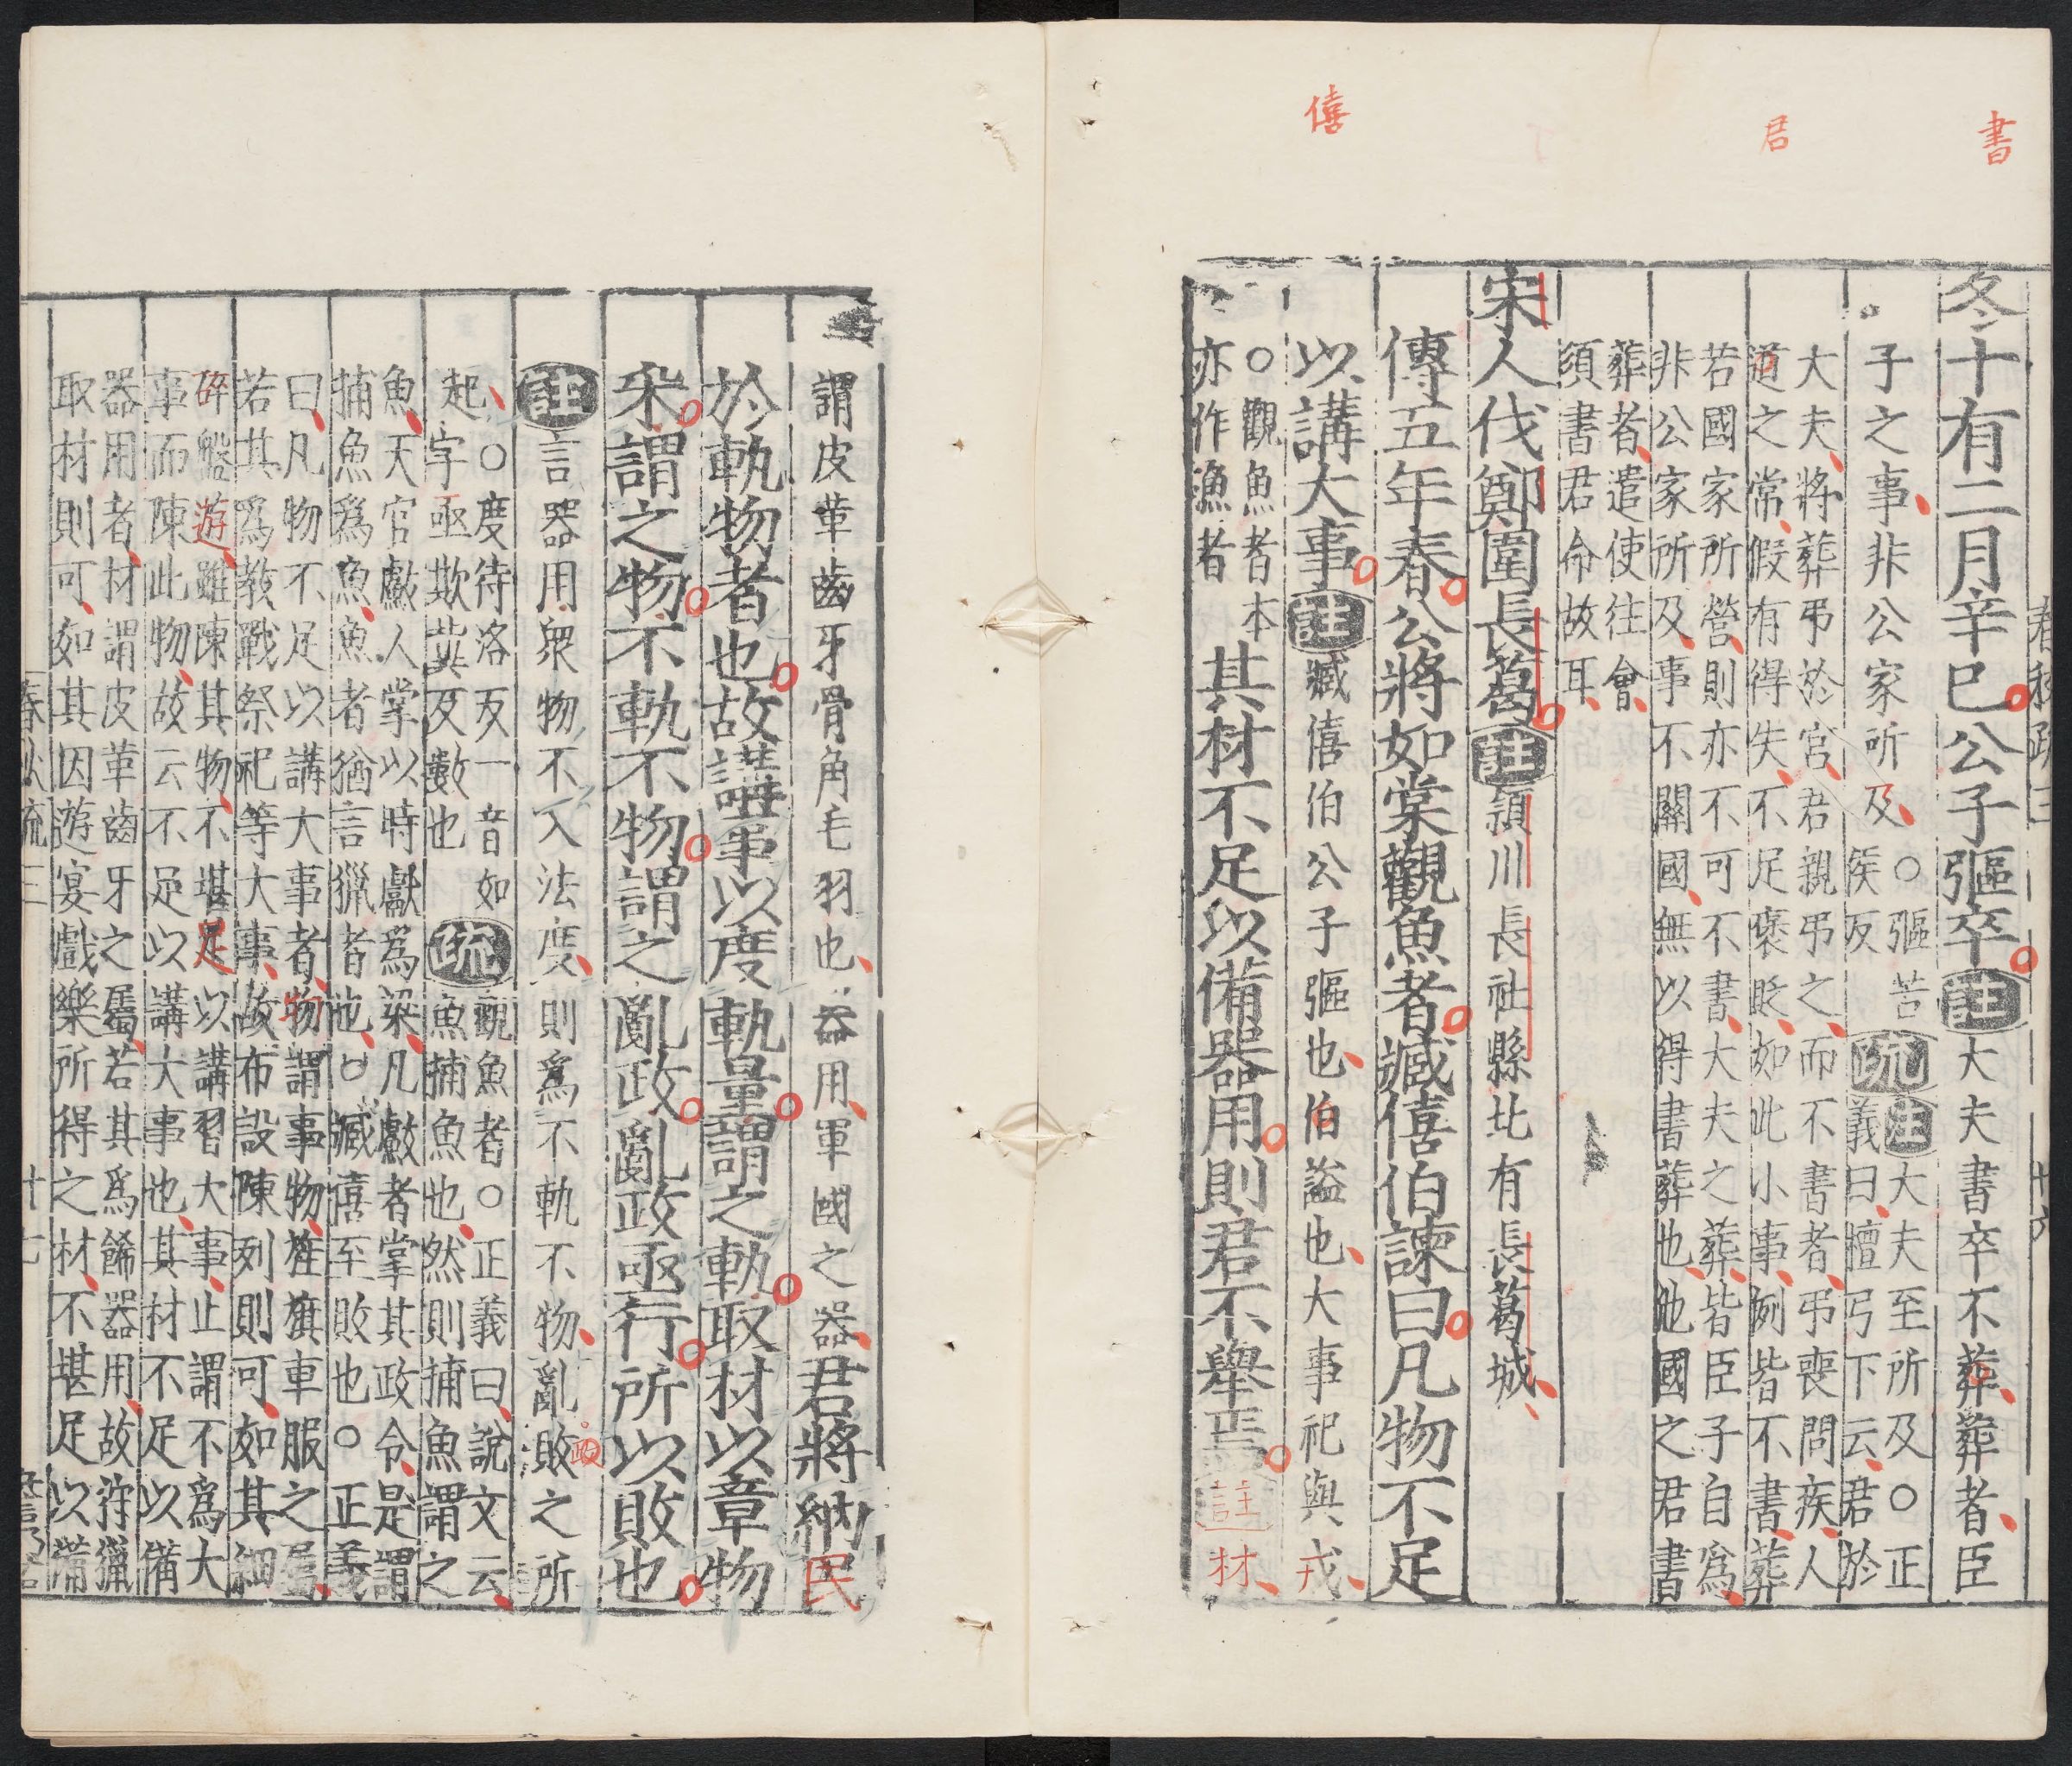 書
君
僖
冬十有二月辛巳公子彄卒註大夫書卒不葬葬者臣
子之事非公家所及
○彄苦
侯反
疏
注大夫至所及○正
義曰檀弓下云君於
大夫將葬弔於宮君親弔之而不書者弔喪問疾人
道之常假有得失不足褒貶如此小事例皆不書葬
若國家所營則亦不可不書大夫之葬皆臣子自為
非公家所及事不關國無以得書葬也他國之君書
葬者遣使往會
須書君命故耳
宋人伐鄭圍長葛註潁川長社縣北有長葛城
傳五年春公將如棠觀魚者臧僖伯諫曰凡物不足
以講大事註臧僖伯公子彄也伯謚也大事祀與戎
○觀魚者本
亦作漁者
其材不足以備器用則君不舉焉註材
謂皮革齒牙骨角毛羽也器用軍國之器君將納民
於軌物者也故講事以度軌量謂之軌取材以章物
采謂之物不軌不物謂之亂政亂政亟行所以敗也
註言器用衆物不入法度則為不軌不物亂敗之所
政
起
○度待洛反一音如
字亟欺兾反數也
疏
觀魚者○正義曰說文云
魚捕魚也然則捕魚謂之
魚天官䱷人掌以時䱷為梁凡䱷者掌其政令是謂
捕魚為魚魚者猶言獵者也○臧僖至敗也○正義
曰凡物不足以講大事者物謂事物旌旗車服之屬
若其為教戰祭祀等大事故布設陳列則可如其細
碎盤遊雖陳其物不堪足以講習大事止謂不為大
事而陳此物故云不足以講大事也其材不足以備
器用者材謂皮革齒牙之屬若其為餙器用故狩獵
取材則可如其因遊宴戲樂所得之材不堪足以備
春秋疏三
十七
春秋疏三
十六